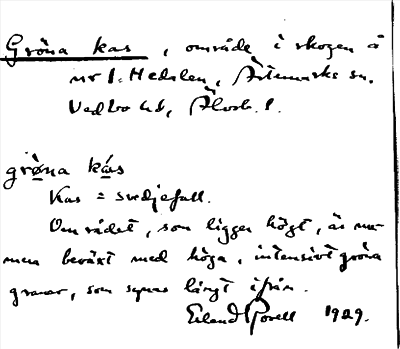 Gröna kas, område i skogen å
nr 1. Hedalen, Ärtemarks sn.
Vedbo hd, Älvsb. l.
gròna kás
Kas = svedjefall.
Området, som ligger högt, är nu-
men beväxt med höga, intensivt gröna
granar, som synas långt ifrån.
Erland Borell 1929.